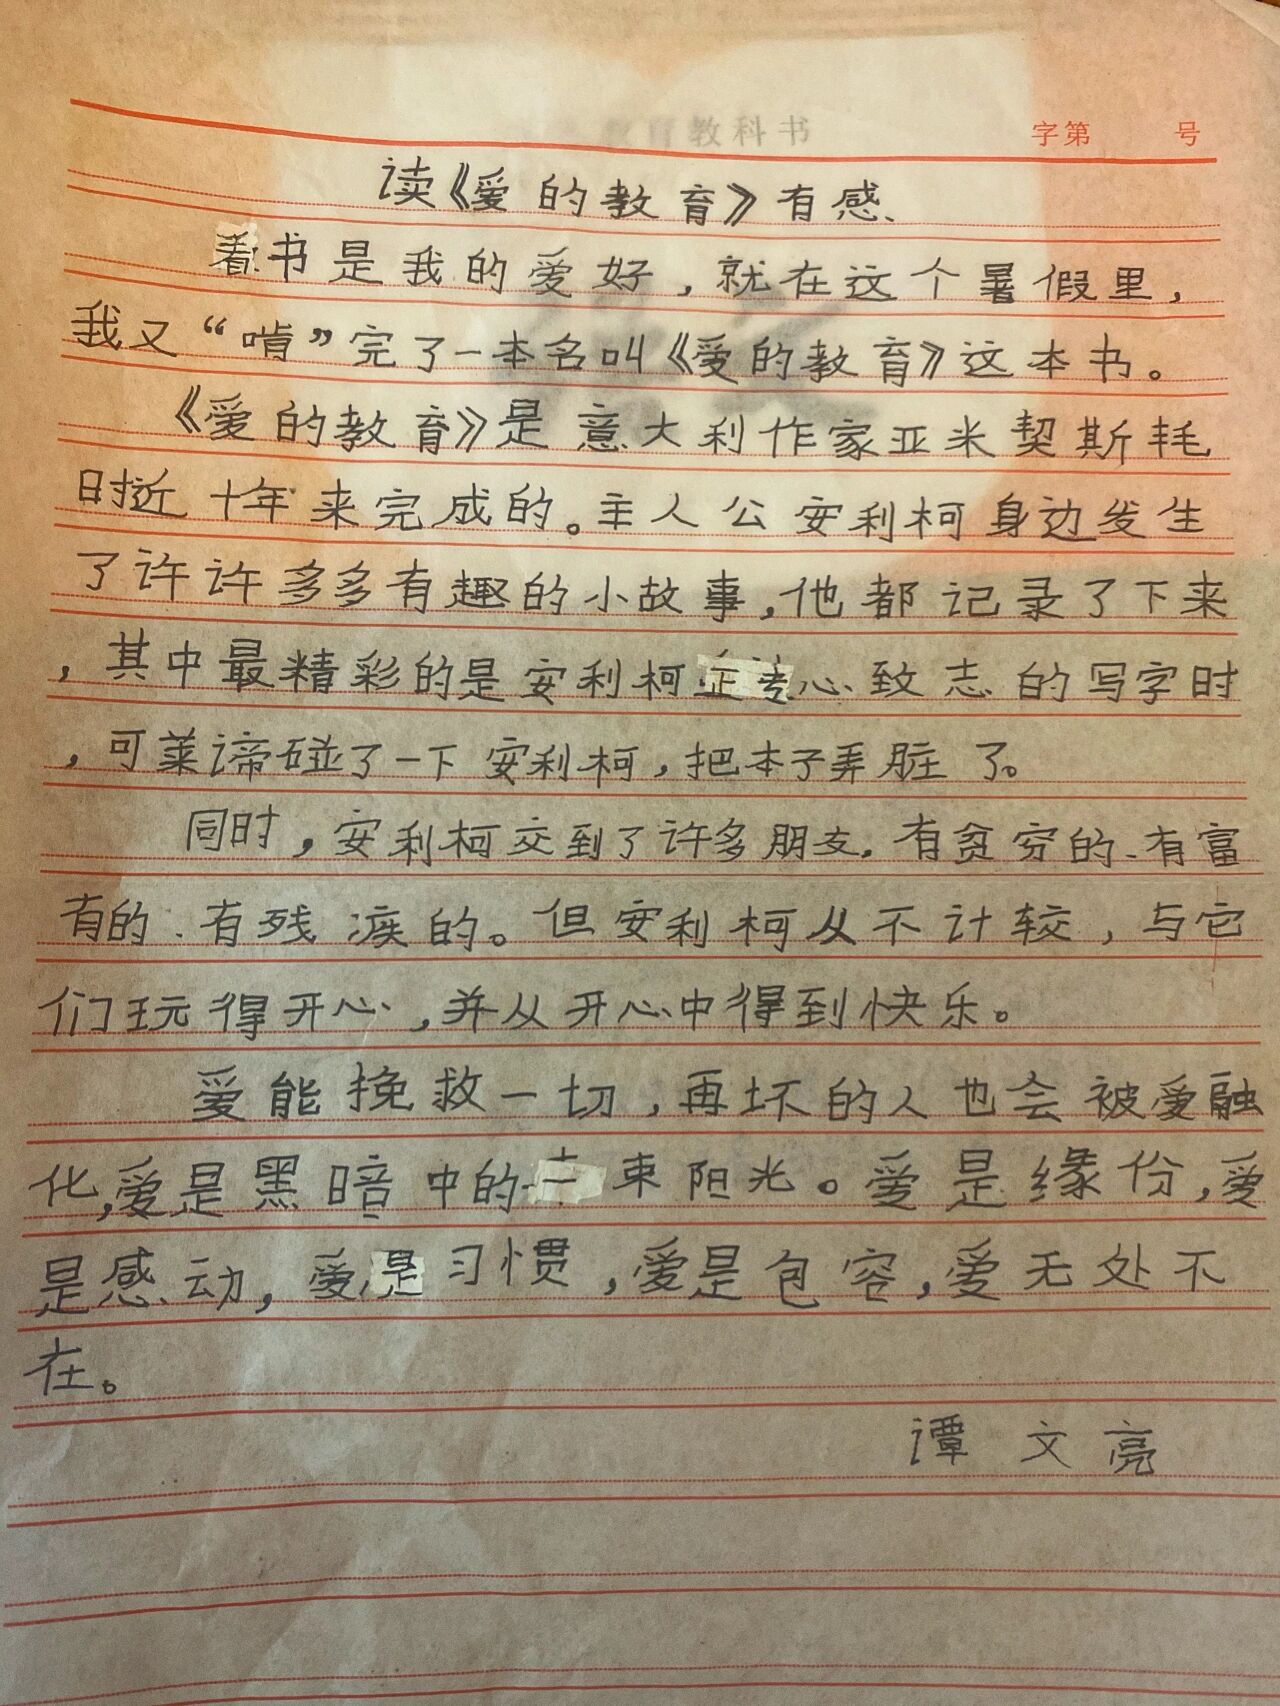 教育教科书
字第 号
读《爱的教育》有感
看书是我的爱好，就在这个暑假里，
我又“啃”完了一本名叫《爱的教育》这本书。
《爱的教育》是意大利作家亚米契斯耗
时近十年来完成的。主人公安利柯身边发生
了许许多多有趣的小故事，他都记录了下来
，其中最精彩的是安利柯正专心致志的写字时
，可莱谛碰了一下安利柯，把本子弄脏了。
同时，安利柯交到了许多朋友，有贫穷的、有富
有的、有残疾的。但安利柯从不计较，与它
们玩得开心，并从开心中得到快乐。
爱能挽救一切，再坏的人也会被爱融
化，爱是黑暗中的一束阳光。爱是缘份，爱
是感动，爱是习惯，爱是包容，爱无处不
在。
谭文亮